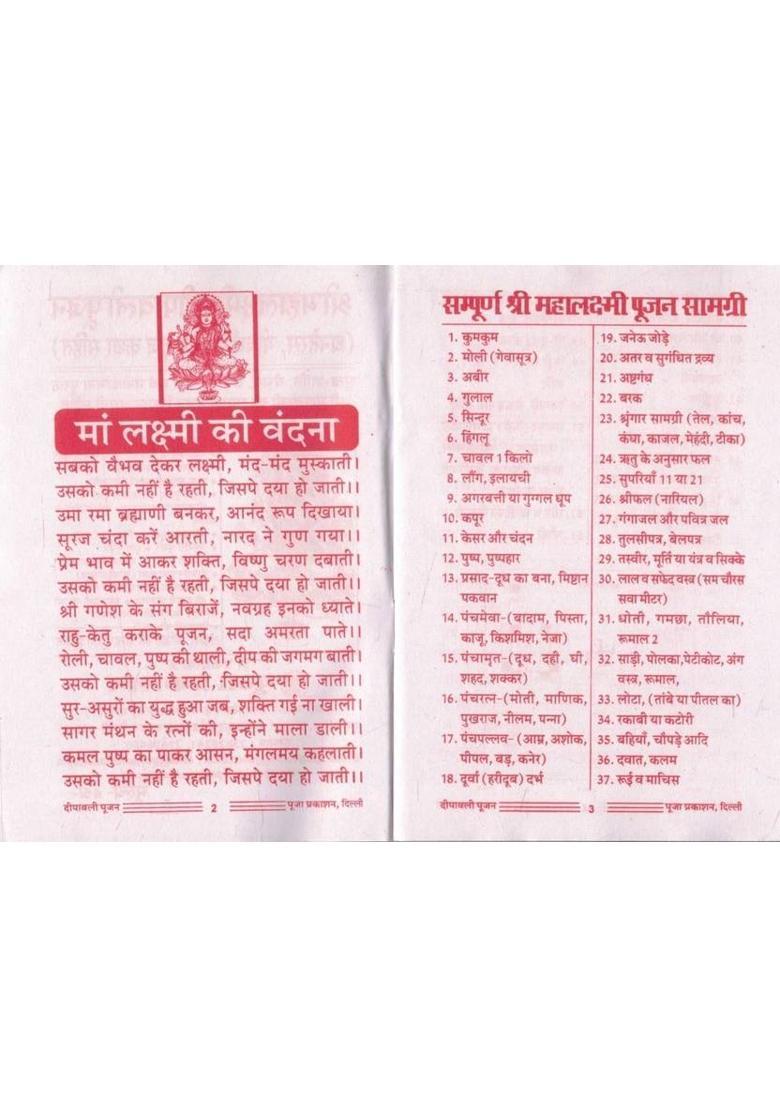 मां लक्ष्मी की वंदना
सबको वैभव देकर लक्ष्मी, मंद-मंद मुस्काती।
उसको कमी नहीं है रहती, जिसपे दया हो जाती।।
उमा रमा ब्रह्माणी बनकर, आनंद रूप दिखाया।
सूरज चंदा करें आरती, नारद ने गुण गया।।
प्रेम भाव में आकर शक्ति, विष्णु चरण दबाती।
उसको कमी नहीं है रहती, जिसपे दया हो जाती।।
श्री गणेश के संग बिराजें, नवग्रह इनको ध्याते।
राहु-केतु कराके पूजन, सदा अमरता पाते।।
रोली, चावल, पुष्प की थाली, दीप की जगमग बाती।
उसको कमी नहीं है रहती, जिसपे दया हो जाती।।
सुर-असुरों का युद्ध हुआ जब, शक्ति गई ना खाली।
सागर मंथन के रत्नों की, इन्होंने माला डाली।।
कमल पुष्प का पाकर आसन, मंगलमय कहलाती।
उसको कमी नहीं है रहती, जिसपे दया हो जाती।।
दीपावली पूजन 2 पूजा प्रकाशन, दिल्ली
सम्पूर्ण श्री महालक्ष्मी पूजन सामग्री
1. कुमकुम
2. मोली (गेवासूत्र)
3. अबीर
4. गुलाल
5. सिन्दूर
6. हिंगलू
7. चावल 1 किलो
8. लौंग, इलायची
9. अगरबत्ती या गुग्गल धूप
10. कपूर
11. केसर और चंदन
12. पुष्प, पुष्पहार
13. प्रसाद-दूध का बना, मिष्टान
पकवान
14. पंचमेवा-(बादाम, पिस्ता,
काजू, किशमिश, नेजा)
15. पंचामृत-(दूध, दही, घी,
शहद, शक्कर)
16. पंचरत्न-(मोती, माणिक,
पुखराज, नीलम, पन्ना)
17. पंचपल्लव-(आम्र, अशोक,
पीपल, बड़, कनेर)
18. दूर्वा (हरीदूब) दर्भ
19. जनेऊ जोड़े
20. अतर व सुगंधित द्रव्य
21. अष्टगंध
22. बरक
23. श्रृंगार सामग्री (तेल, कांच,
कंघा, काजल, मेहंदी, टीका)
24. ऋतु के अनुसार फल
25. सुपरियाँ 11 या 21
26. श्रीफल (नारियल)
27. गंगाजल और पवित्र जल
28. तुलसीपत्र, बेलपत्र
29. तस्वीर, मूर्ति या यंत्र व सिक्के
30. लाल व सफेद वस्त्र (सम चौरस
सवा मीटर)
31. धोती, गमछा, तौलिया,
रूमाल 2
32. साड़ी, पोलका,पेटीकोट, अंग
वस्त्र, रूमाल,
33. लोटा, (तांबे या पीतल का)
34. रकाबी या कटोरी
35. बहियाँ, चौपड़े आदि
36. दवात, कलम
37. रूई व माचिस
दीपावली पूजन 3 पूजा प्रकाशन, दिल्ली